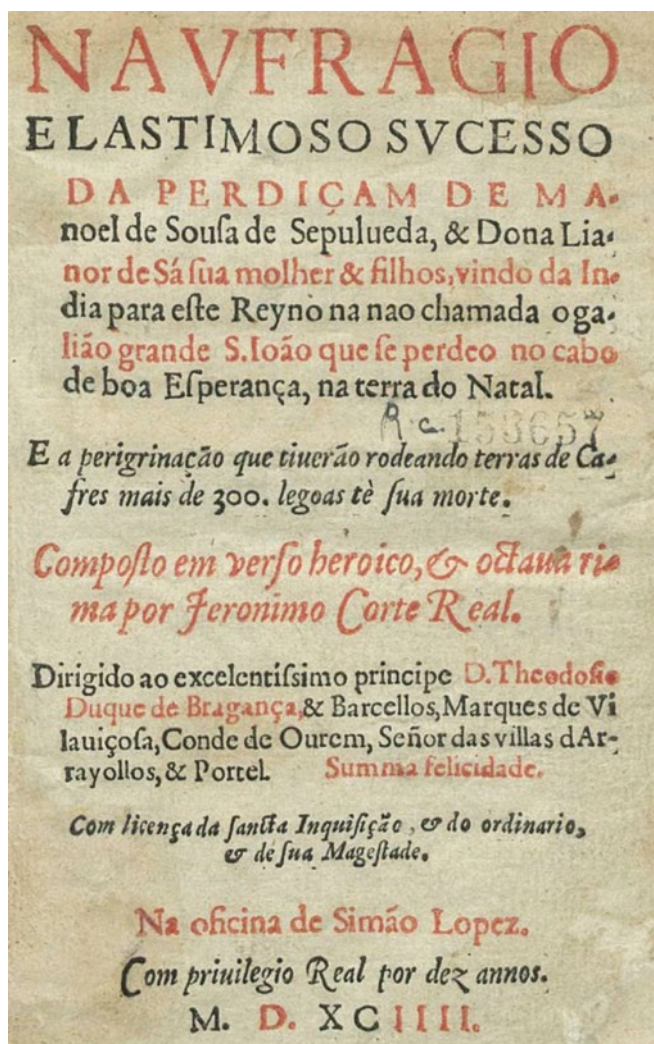 NAVFRAGIO
E LASTIMOSO SVCESSO
DA PERDIÇAM DE MA-
noel de Souſa de Sepulueda, & Dona Lia-
nor de Sá ſua molher & filhos, vindo da In-
dia para eſte Reyno na nao chamada o ga-
lião grande S. Ioão que ſe perdeo no cabo
de boa Eſperança, na terra do Natal.
R c. 153657
E a perigrinação que tiuerão rodeando terras de Ca-
fres mais de 300. legoas tè ſua morte.
Compoſto em verſo heroico, & octaua ri-
ma por Jeronimo Corte Real.
Dirigido ao excelentiſsimo principe D. Theodoſio
Duque de Bragança, & Barcellos, Marques de Vi
lauiçoſa, Conde de Ourem, Señor das villas dAr-
rayollos, & Portel. Summa felicidade.
Com licença da ſancta Inquiſição, & do ordinario,
& de ſua Mageſtade.
Na oficina de Simão Lopez.
Com priuilegio Real por dez annos.
M. D. XCIIII.